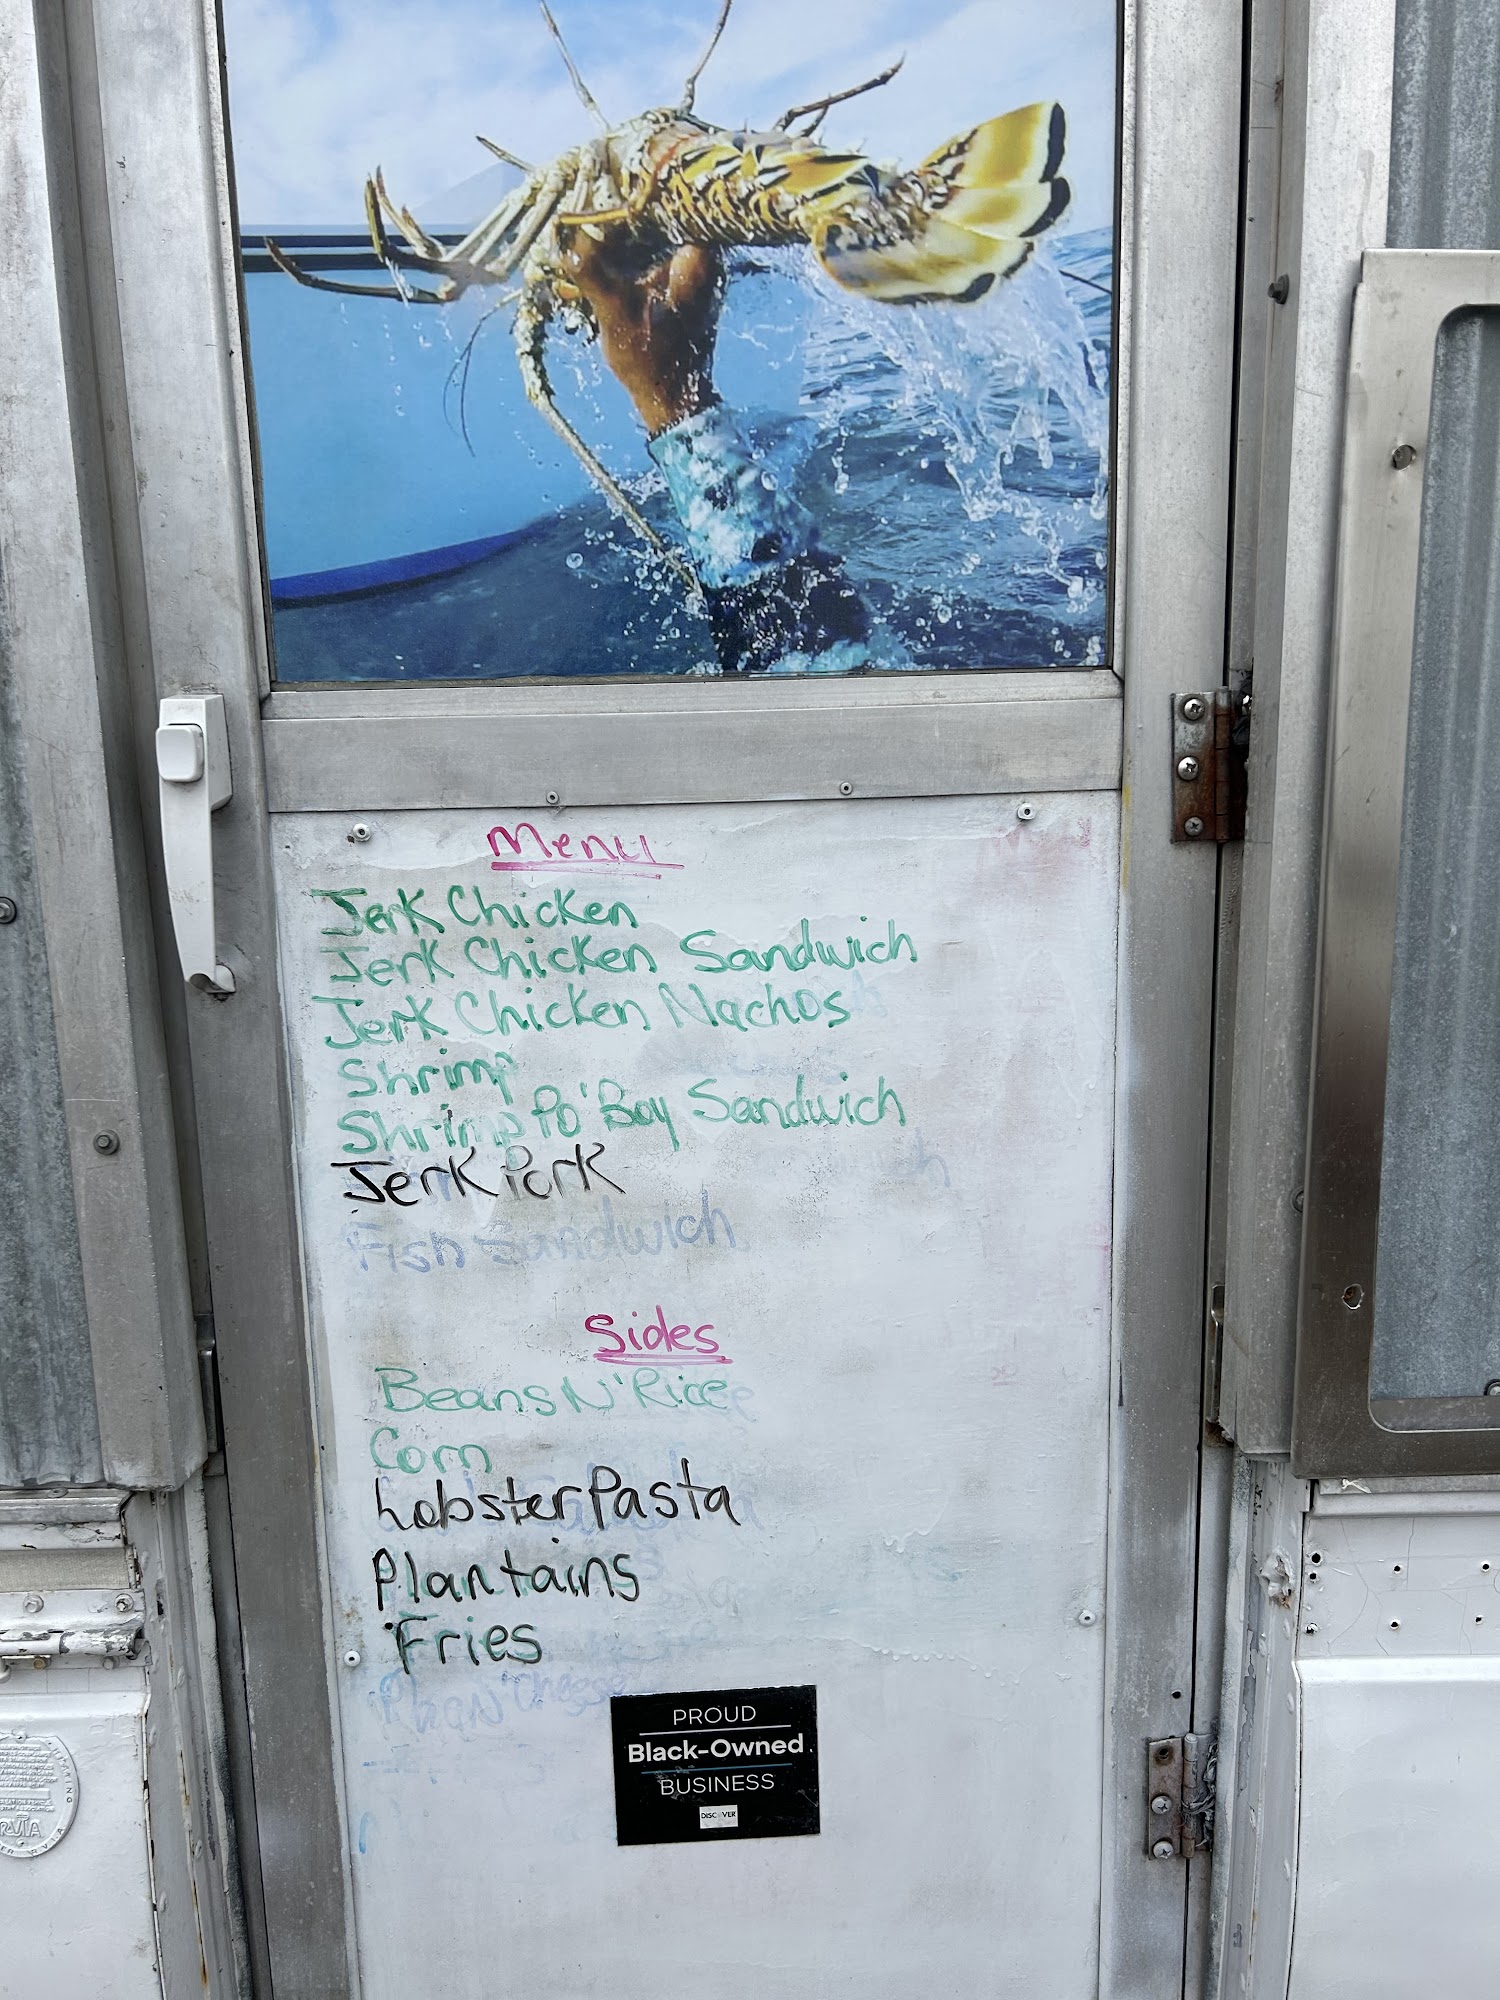 Menu
Jerk Chicken
Jerk Chicken Sandwich
Jerk Chicken Nachos
Shrimp
Shrimp Po'Boy Sandwich
Jerk Pork
Fish Sandwich
Sides
Beans N' Rice
Corn
Lobster Pasta
Plantains
Fries
PROUD
Black-Owned
BUSINESS
DISCOVER
RVIA